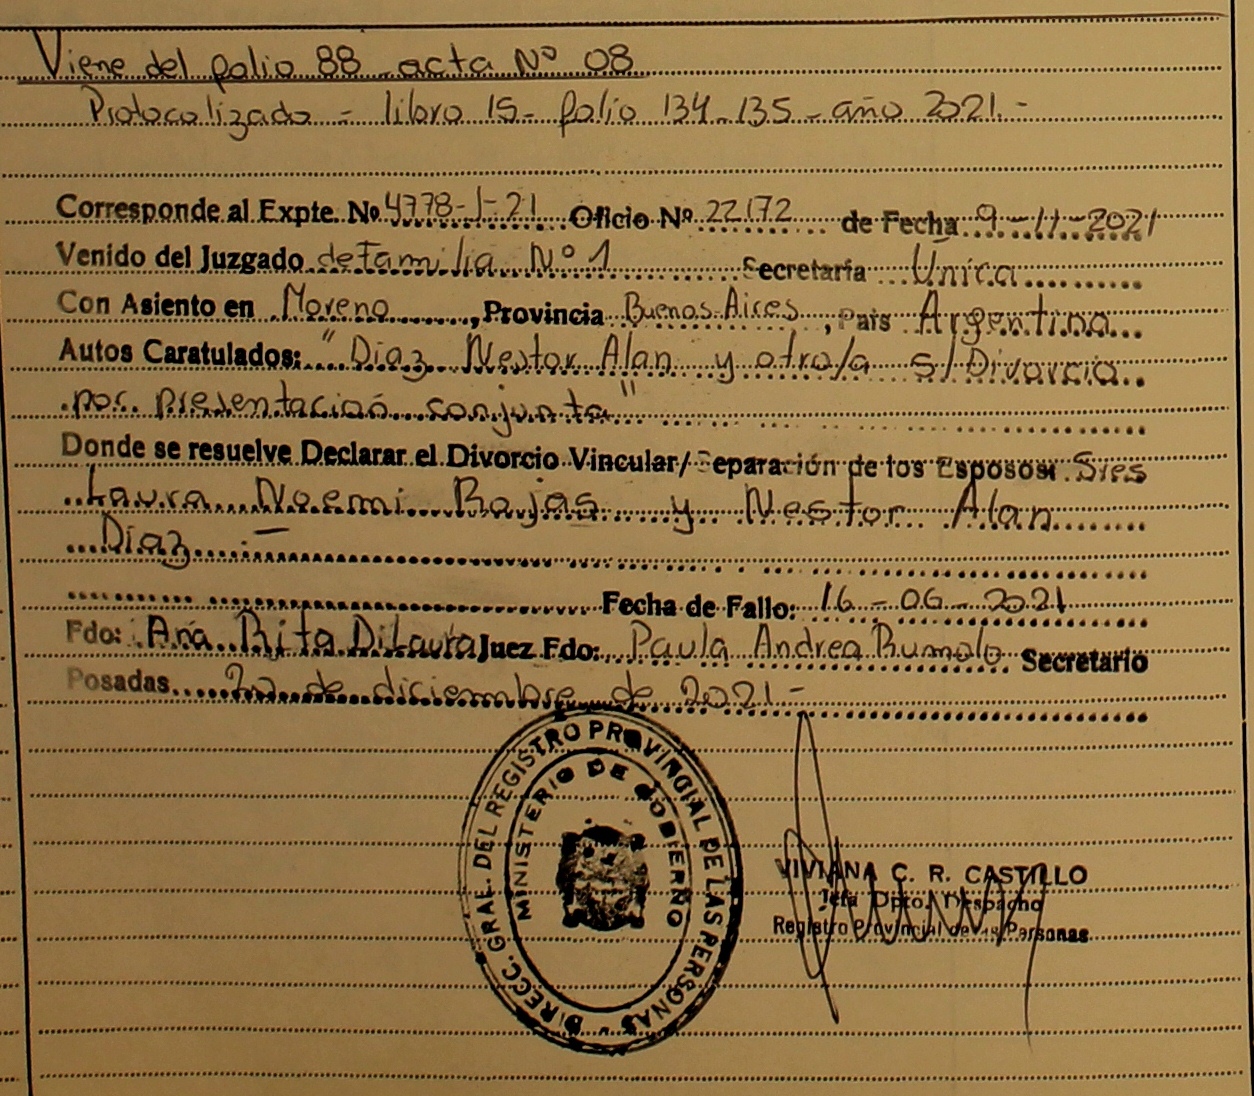 Viene del folio 88 acta Nº 08
Protocolizado - libro 15 - folio 134-135 - año 2021.-
Corresponde al Expte. Nº 4778-J-21 Oficio Nº 22172 de Fecha 9-11-2021
Venido del Juzgado de Familia Nº 1 Secretaría Unica
Con Asiento en Moreno, Provincia Buenos Aires, País Argentina
Autos Caratulados: "Diaz Nestor Alan y otro/a s/ Divorcio
por presentación conjunta"
Donde se resuelve Declarar el Divorcio Vincular/Separación de los Esposos: Sres
Laura Noemi Rojas y Nestor Alan
Díaz.-
Fecha de Fallo: 16-06-2021
Fdo: Ana Rita Di Laura Juez Fdo: Paula Andrea Rumolo Secretario
Posadas 20 de diciembre de 2021-
DIRECC. GRAL. DEL REGISTRO PROVINCIAL DE LAS PERSONAS
MINISTERIO DE GOBIERNO
VIVIANA C. R. CASTILLO
Jefa Dpto. Despacho
Registro Provincial de las Personas